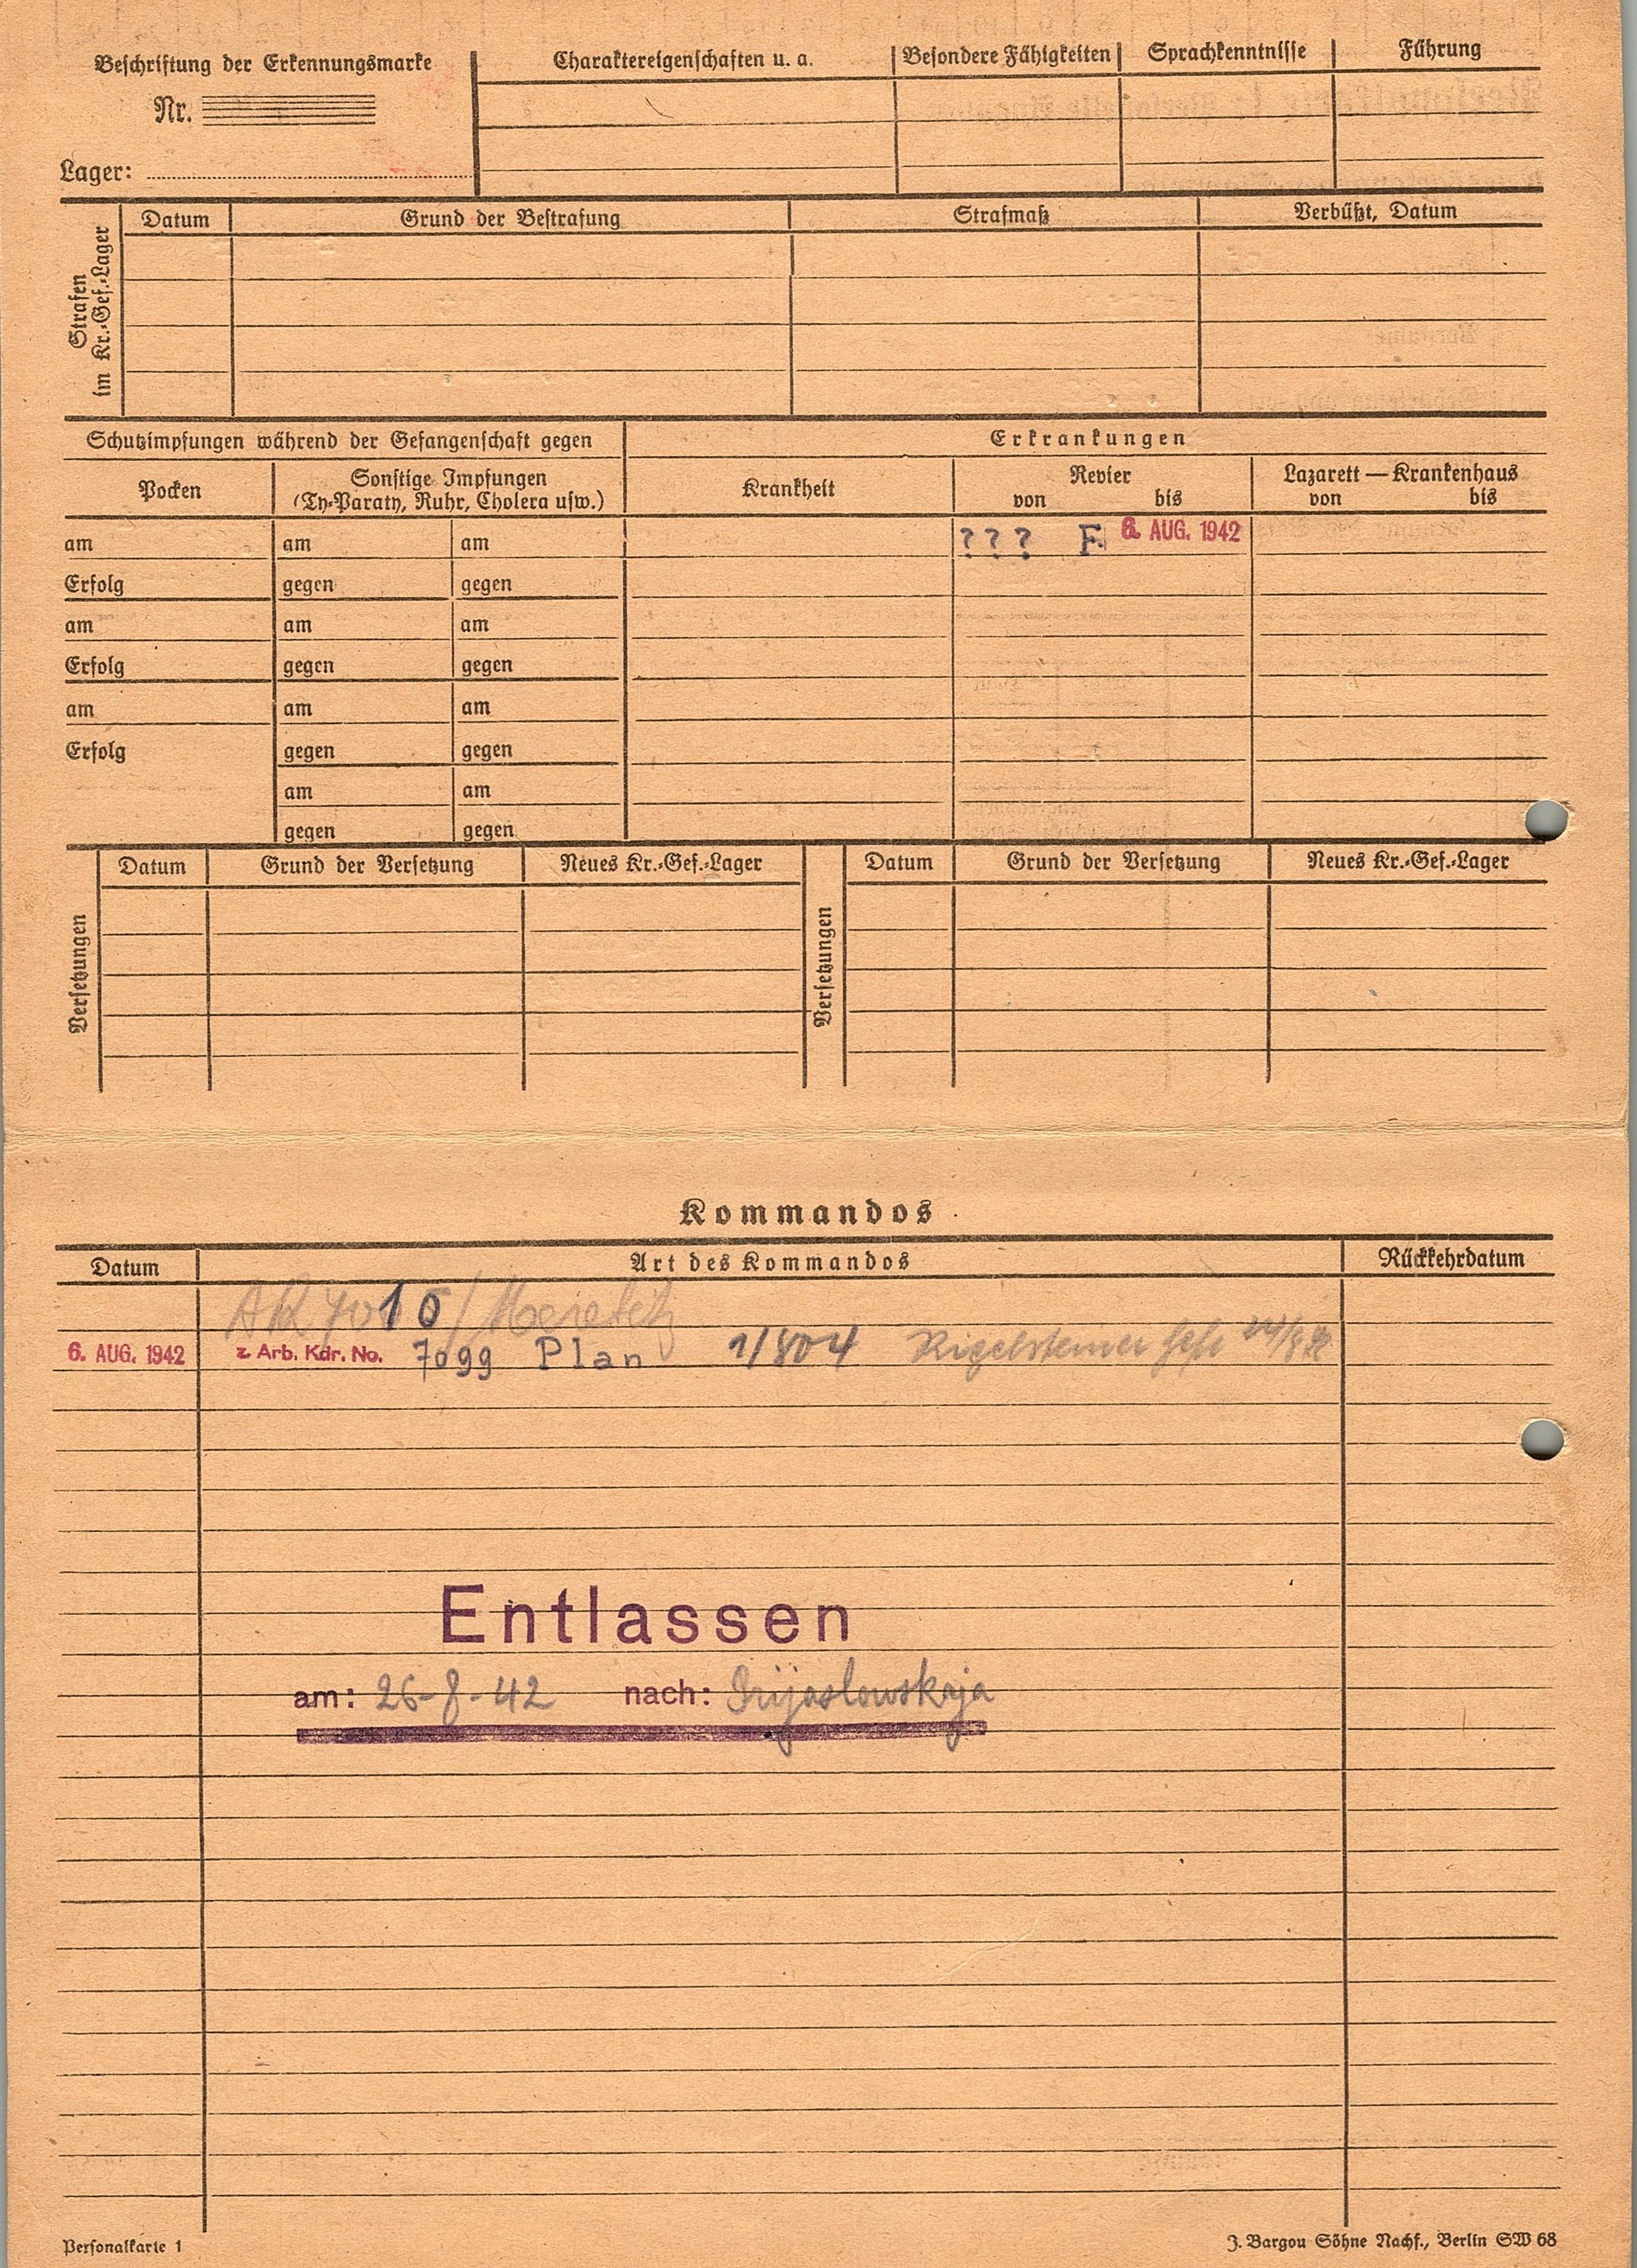 Beschriftung der Erkennungsmarke
Nr.
Lager:
Charaktereigenschaften u. a.
Besondere Fähigkeiten
Sprachkenntnisse
Führung
Strafen
im Kr.-Gef.-Lager
Datum Grund der Bestrafung Strafmaß Verbüßt, Datum
Schutzimpfungen während der Gefangenschaft gegen
Erkrankungen
Pocken
Sonstige Impfungen
(Ty-Paraty, Ruhr, Cholera usw.)
Krankheit
Revier
von bis
Lazarett — Krankenhaus
von bis
am am am ??? F. 6. AUG. 1942
Erfolg gegen gegen
am am am
Erfolg gegen gegen
am am am
Erfolg gegen gegen
am am
gegen gegen
Versetzungen
Datum Grund der Versetzung Neues Kr.-Gef.-Lager
Versetzungen
Datum Grund der Versetzung Neues Kr.-Gef.-Lager
Kommandos
Datum Art des Kommandos Rückkehrdatum
6. AUG. 1942 z. Arb. Kdr. No. 7099 Plan 1/804
Entlassen
am: 26-8-42 nach:
Personalkarte 1
J. Bargou Söhne Nachf., Berlin SW 68